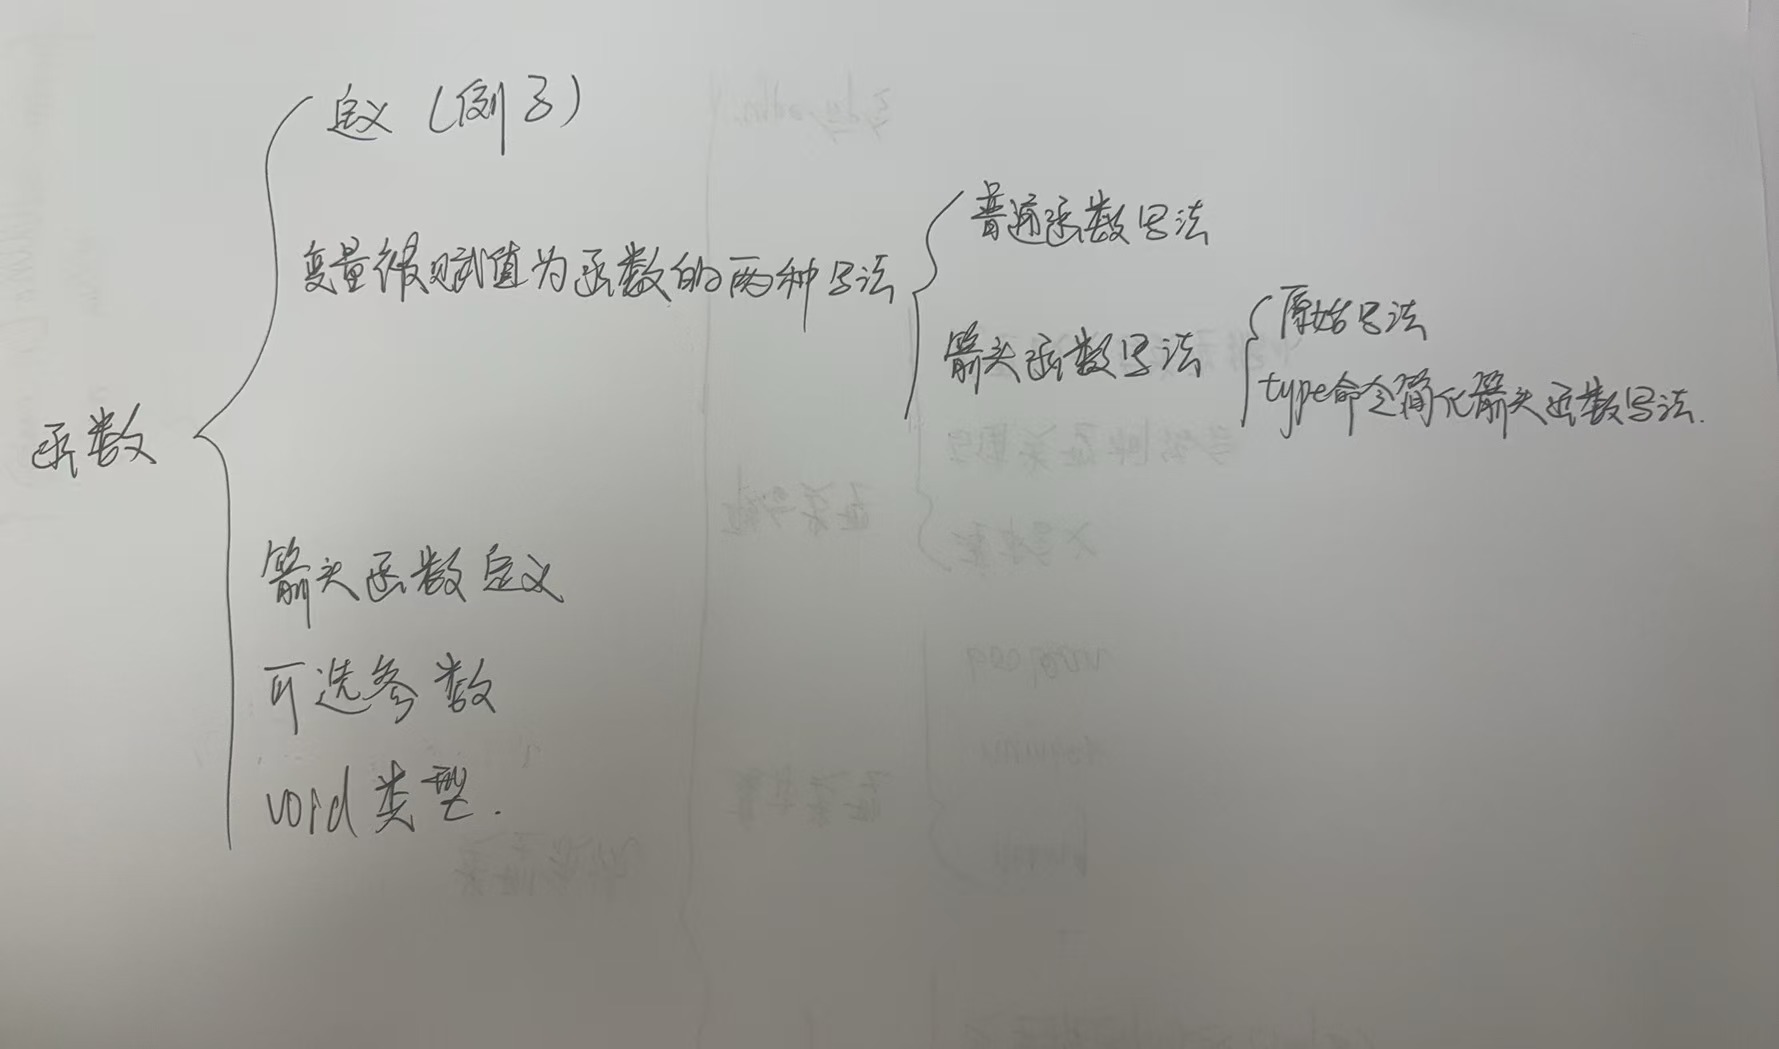 定义（例子）
普通函数写法
变量被赋值为函数的两种写法
原始写法
箭头函数写法
type命令简化箭头函数写法.
函数
箭头函数定义
可选参数
void类型.